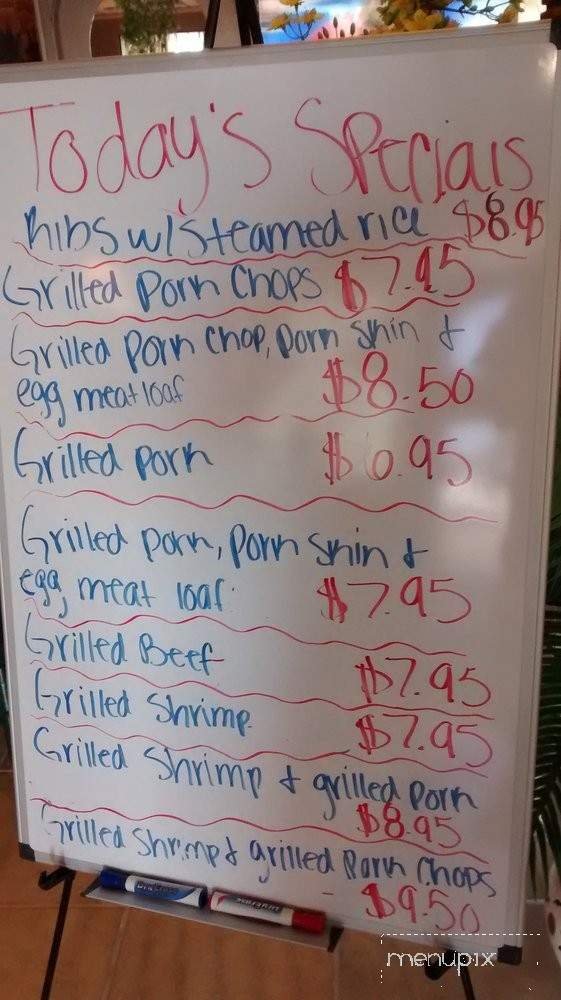 Today's Specials
Ribs w/steamed rice $8.95
Grilled Pork Chops $7.95
Grilled Pork Chop, Pork skin &
egg meat loaf $8.50
Grilled Pork $6.95
Grilled Pork, Pork skin &
egg, meat loaf $7.95
Grilled Beef $7.95
Grilled Shrimp $7.95
Grilled Shrimp & grilled Pork
$8.95
Grilled Shrimp & grilled Pork Chops
$9.50
menupix